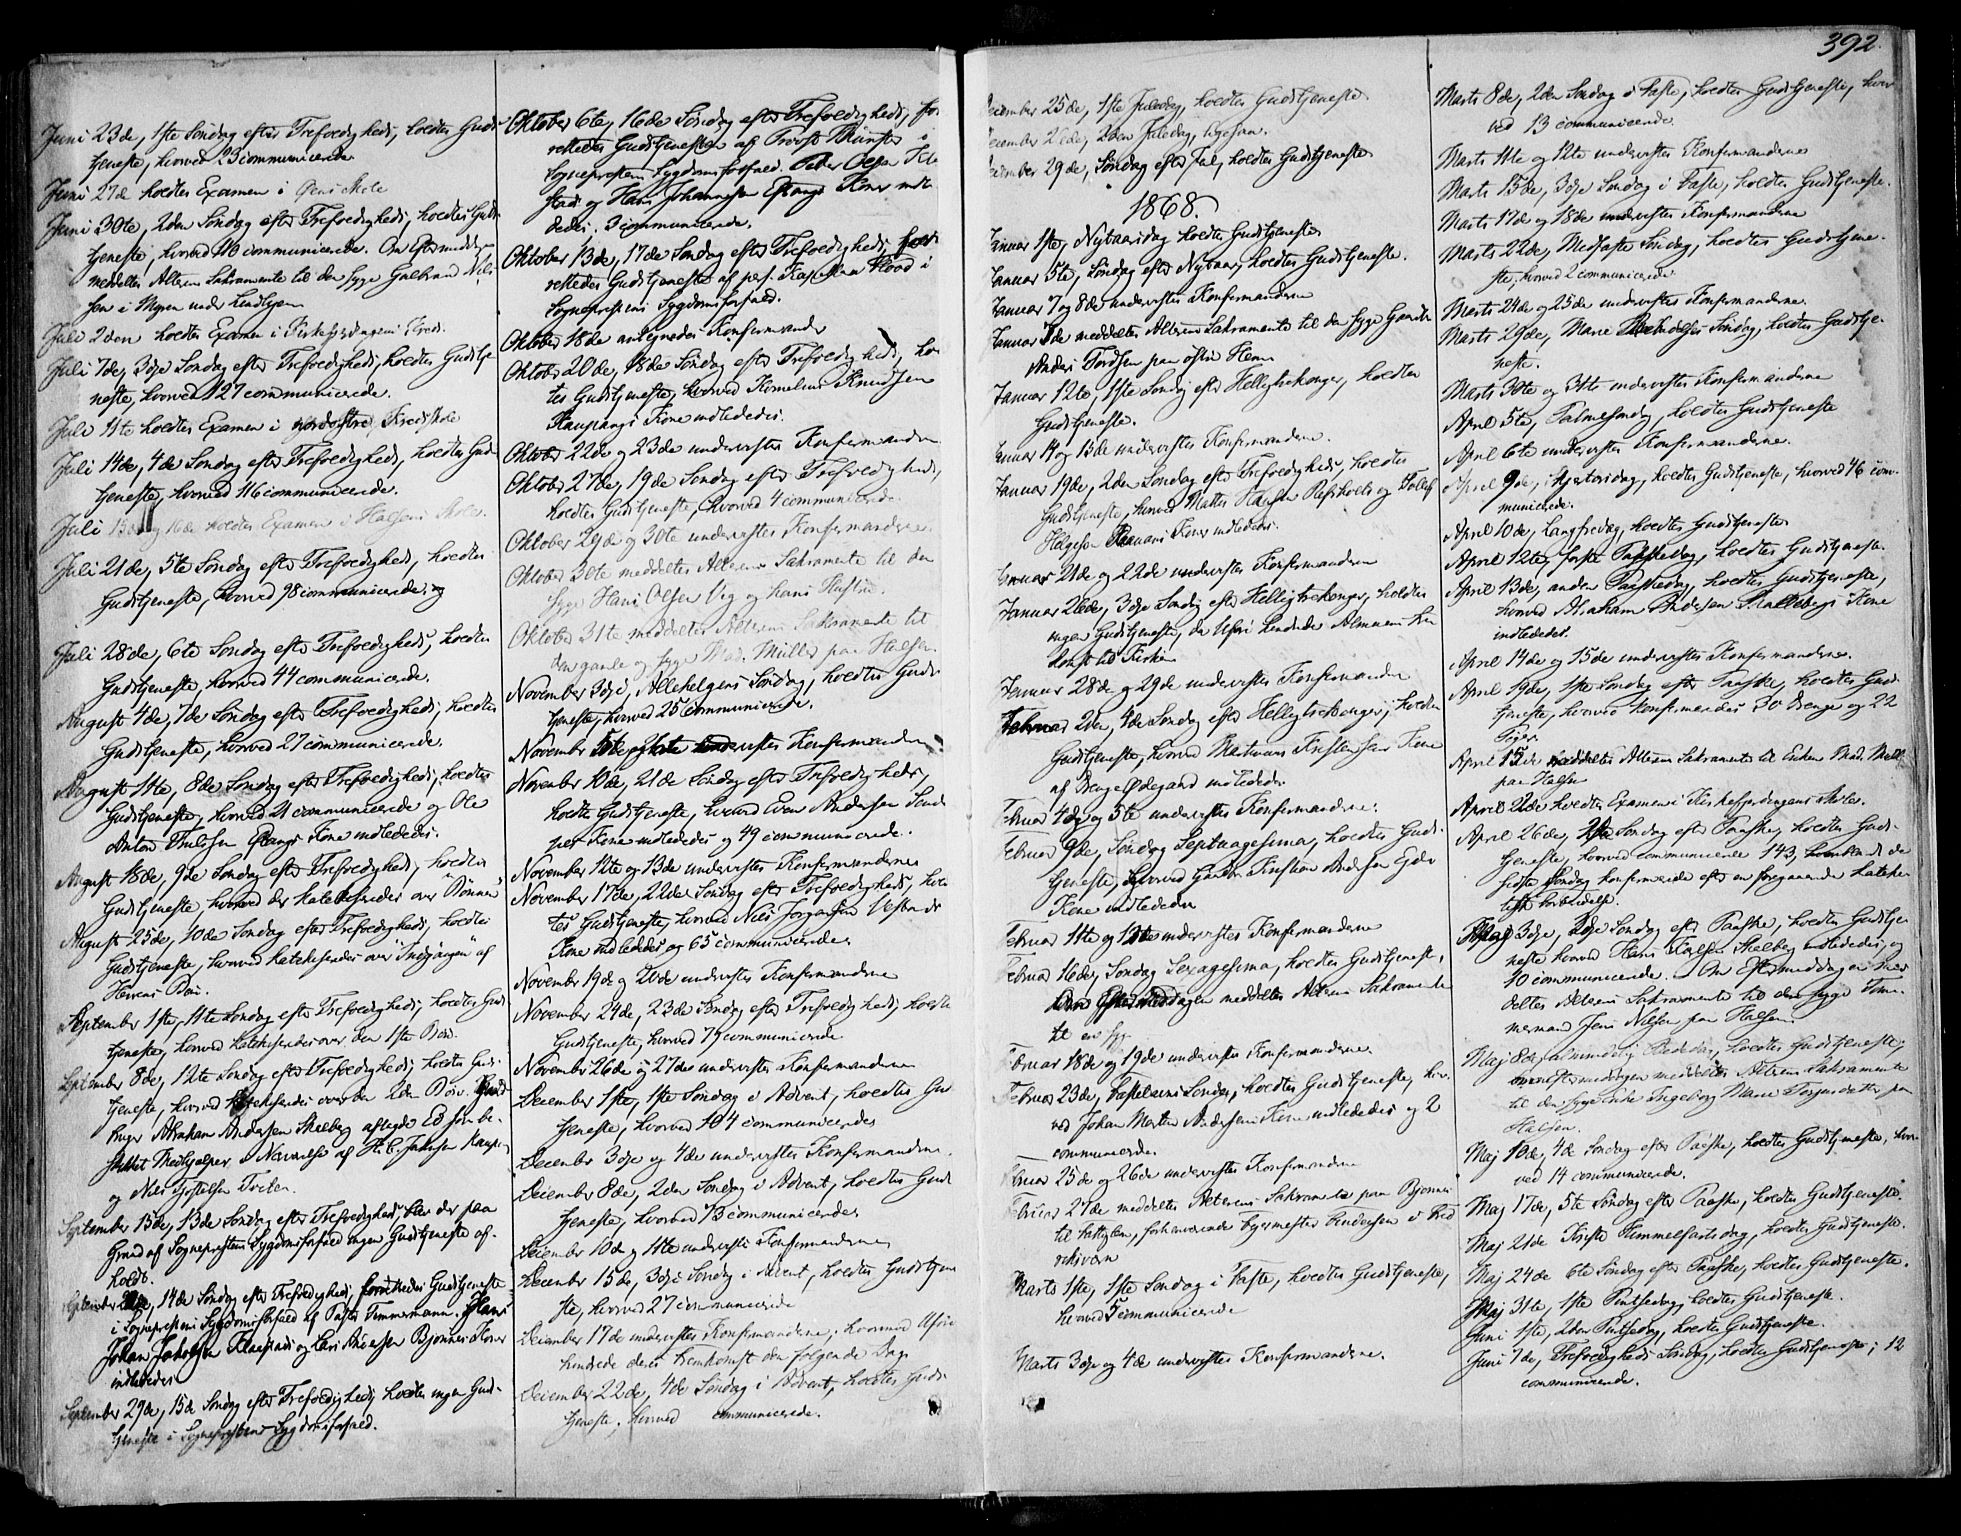 392.
Juni 23de, 1ste Søndag efter Trefoldigheds, holdtes Guds-
tjeneste, hvorved 23 communicerede
Juni 27de holdtes Examen i
Juni 30te, 2den Søndag efter Trefoldigheds, holdtes Guds-
tjeneste, hvorved 110 communicerede. Om Eftermiddagen
meddeltes Alterens Sakramente til den syge Gulbrand Niel-
sen i Myren under
Juli 2den holdtes Examen i
Juli 7de, 3dje Søndag efter Trefoldigheds, holdtes Gudstje-
neste, hvorved 127 communicerede.
Juli 11te holdtes Examen i Kredsskole
Juli 14de, 4de Søndag efter Trefoldigheds, holdtes Guds-
tjeneste, hvorved 116 communicerede.
Juli og 16de holdtes Examen i Halsens Skole.
Juli 21de, 5te Søndag efter Trefoldigheds, holdtes
Gudstjeneste, hvorved 98 communicerede.
Juli 28de, 6te Søndag efter Trefoldigheds, holdtes
Gudstjeneste, hvorved 44 communicerede.
August 4de, 7de Søndag efter Trefoldigheds, holdtes
Gudstjeneste, hvorved 27 communicerede.
August 11te, 8de Søndag efter Trefoldigheds, holdtes
Gudstjeneste, hvorved 21 communicerede og Ole
Anton Kone indlededes.
August 18de, 9de Søndag efter Trefoldigheds, holdtes
Gudstjeneste, hvorved der katekiseredes over "Bønnen"
August 25de, 10de Søndag efter Trefoldigheds, holdtes
Gudstjeneste, hvorved katekiseredes over "Indgangen" af
Herrens Bøn.
September 1ste, 11te Søndag efter Trefoldigheds, holdtes Guds-
tjeneste, hvorved katekiseredes over den 1ste Bøn.
September 8de, 12te Søndag efter Trefoldigheds, holdtes Guds-
tjeneste, hvorved katekiseredes over den 2den Bøn.
bruger Abraham Andersen Skalleberg aflagde Ed som be-
skikket Medhjælper i Nærværelse af H. C. Jakobsen Kaupang
og Niels
September 15de, 13de Søndag efter Trefoldigheds blev der paa
Grund af Sognepræstens Sygdomsforfald ingen Gudstjeneste af-
holdt.
September 22de, 14de Søndag efter Trefoldigheds, forrettedes Gudstjeneste
i Sognepræstens Sygdomsforfald af Pastor Timmermann. Hans
Johan Jakobsen og Lars Andersen Bjønnes Koner
indlededes
September 29de, 15de Søndag efter Trefoldigheds, holdtes ingen Guds-
tjeneste i Sognepræstens Sygdomsforfald.
Oktober 6te, 16de Søndag efter Trefoldigheds, for-
rettedes Gudstjenesten af Provst Münster i
Sognepræstens Sygdomsforfald. Peder Olsen
og Hans Johannessen Koner indle-
dedes. 3 communicerede.
Oktober 13de, 17de Søndag efter Trefoldigheds, for-
rettedes Gudstjeneste af pers. Kapellan Flood i
Sognepræstens Sygdomsforfald.
Oktober 18de antegnedes Konfirmander
Oktober 20de, 18de Søndag efter Trefoldigheds, hold-
tes Gudstjeneste, hvorved Kornelius Knudsen
Kaupangs Kone indlededes.
Oktober 22de og 23de undervistes Konfirmanderne
Oktober 27de, 19de Søndag efter Trefoldigheds,
holdtes Gudstjeneste, hvorved 4 communicerede.
Oktober 29de og 30te undervistes Konfirmanderne.
Oktober 30te meddeltes Alterens Sakramente til den
syge Hans Olsen Vig og hans Hustru.
Oktober 31te meddeltes Alterens Sakramente til
den gamle og syge Mad. Müller paa Halsen
November 3dje, Allehelgens Søndag, holdtes Guds-
tjeneste, hvorved 25 communicerede.
November undervistes Konfirmanderne
November 10de, 21de Søndag efter Trefoldigheds,
holdtes Gudstjeneste, hvorved Even Andersen
Kone indlededes og 49 communicerede.
November 12te og 13de undervistes Konfirmanderne
November 17de, 22de Søndag efter Trefoldigheds, hold-
tes Gudstjeneste, hvorved Niels Jørgensen
Kone indlededes og 65 communicerede.
November 19de og 20de undervistes Konfirmanderne
November 24de, 23de Søndag efter Trefoldigheds, holdtes
Gudstjeneste, hvorved 75 communicerede
November 26de og 27de undervistes Konfirmanderne
December 1ste, 1ste Søndag i Advent, holdtes Gud-
stjeneste, hvorved 104 communicerede
December 3dje og 4de undervistes Konfirmanderne.
December 8de, 2den Søndag i Advent, holdtes Gud-
stjeneste, hvorved 73 communicerede
December 10de og 11te undervistes Konfirmanderne
December 15de, 3dje Søndag i Advent, holdtes Gudstjene-
ste, hvorved 27 communicerede
December 17de undervistes Konfirmanderne, hvormed Uføre
hindrede deres Fremkomst den følgende Dag.
December 22de, 4de Søndag i Advent, holdtes Guds-
tjeneste, hvorved communicerede.
December 25de, 1ste Juledag, holdtes Gudstjeneste
December 26de, 2den Juledag, ligesaa.
December 29de, Søndag efter Jul, holdtes Gudstjeneste
1868.
Januar 1ste, Nytaarsdag holdtes Gudstjeneste
Januar 5te, Søndag efter Nytaar, holdtes Gudstjeneste.
Januar 7 og 8de undervistes Konfirmanderne
Januar meddeltes Alterens Sakramente til den syge Gaardm.
Anders Tordsen paa østre Hem
Januar 12te, 1ste Søndag efter Helligtrekonger, holdtes
Gudstjeneste.
Januar 14 og 15de undervistes Konfirmanderne.
Januar 19de, 2den Søndag efter Trefoldigheds, holdtes
Gudstjeneste, hvorved Mathis Hansen Refsholts og Tollef
Helgesen Koner indlededes.
Januar 21de og 22de undervistes Konfirmanderne
Januar 26de, 3dje Søndag efter Helligtrekonger, holdtes
ingen Gudstjeneste, da Uføre hindrede Almuens Frem-
komst til Kirken
Januar 28de og 29de undervistes Konfirmanderne
Februar 2den, 4de Søndag efter Helligtrekonger, holdtes
Gudstjeneste, hvorved Martinus Kristensens Kone
af Berge Ødegaard indlededes
Februar 4de og 5te undervistes Konfirmanderne.
Februar 9de, Søndag Septuagesima, holdtes Guds-
tjeneste, hvorved Gaardbr. Kristian Andersen
Kone indlededes
Februar 11te og 12te undervistes Konfirmanderne
Februar 16de, Søndag Sexagesima, holdtes Gudstjeneste,
Om Eftermiddagen meddeltes Alterens Sakramente
til en syg
Februar 18de og 19de undervistes Konfirmanderne.
Februar 23de, Fastelavns Søndag, holdtes Gudstjeneste, hvor-
ved Johan Martin Andersens Kone indlededes og 2
communicerede.
Februar 25de og 26de undervistes Konfirmanderne
Februar 27de meddeltes Alterens Sakramente paa Bjønnes
til Fattiglem, forhenværende Byemester Andersen i Fred-
riksværn
Marts 1ste, 1ste Søndag i Faste, holdtes Gudstjeneste,
hvorved 5 communicerede
Marts 3dje og 4de undervistes Konfirmanderne.
Marts 8de, 2den Søndag i Faste, holdtes Gudstjeneste, hvor-
ved 13 communicerede.
Marts 11te og 12te undervistes Konfirmanderne
Marts 15de, 3dje Søndag i Faste, holdtes Gudstjeneste.
Marts 17de og 18de undervistes Konfirmanderne
Marts 22de, Midfaste Søndag, holdtes Gudstjene-
ste, hvorved 2 communicerede.
Marts 24de og 25de undervistes Konfirmanderne.
Marts 29de, Marie Bebudelses Søndag, holdtes Gudstje-
neste.
Marts 30te og 31te undervistes Konfirmanderne
April 5te, Palmesøndag, holdtes Gudstjeneste
April 6te undervistes Konfirmanderne.
April 9de, Skjertorsdag, holdtes Gudstjeneste, hvorved 46 com-
municerede.
April 10de, Langfredag, holdtes Gudstjeneste
April 12te, første Paaskedag, holdtes Gudstjeneste.
April 13de, anden Paaskedag, holdtes Gudstjeneste,
hvorved Abraham Andersen Skallebergs Kone
indlededes.
April 14de og 15de undervistes Konfirmanderne.
April 19de, 1ste Søndag efter Paaske, holdtes Gud-
stjeneste, hvorved konfirmeredes 30 Drenge og 22
Piger.
April 15de meddeltes Alterens Sakramente til Enken Mad. Müller
paa Halsen
April 22de holdtes Examen i Kirkefjerdingens Skole.
April 26de, 2den Søndag efter Paaske, holdtes Guds-
tjeneste, hvorved communicerede 143, hvoriblandt de
sidste Søndag konfirmerede efter en foregaaende kateke-
tisk Forberedelse.
Maj 3dje, 3dje Søndag efter Paaske, holdtes Gudstje-
neste hvorved Hans indlededes, og
10 communicerede. Om Eftermiddagen med-
deltes Alterens Sakramente til den syge Tøm-
mermand Jens Nilsen paa Halsen.
Maj 8de, almindelig Bededag, holdtes Gudstjeneste,
om Eftermiddagen meddeltes Alterens Sakramente
til den syge Enke Ingeborg Marie paa
Halsen.
Maj 10de, 4de Søndag efter Paaske, holdtes Gudstjeneste, hvor-
ved 14 communicerede.
Maj 17de, 5te Søndag efter Paaske, holdtes Gudstjeneste.
Maj 21de Kristi Himmelfartsdag, holdtes Gudstjeneste.
Maj 24de 6te Søndag efter Paaske, holdtes Gudstjeneste.
Maj 31te, 1ste Pintsedag, holdtes Gudstjeneste.
Juni 1ste, 2den Pintsedag, holdtes Gudstjeneste.
Juni 7de, Trefoldigheds Søndag, holdtes Gudstjeneste; 12
communicerede.